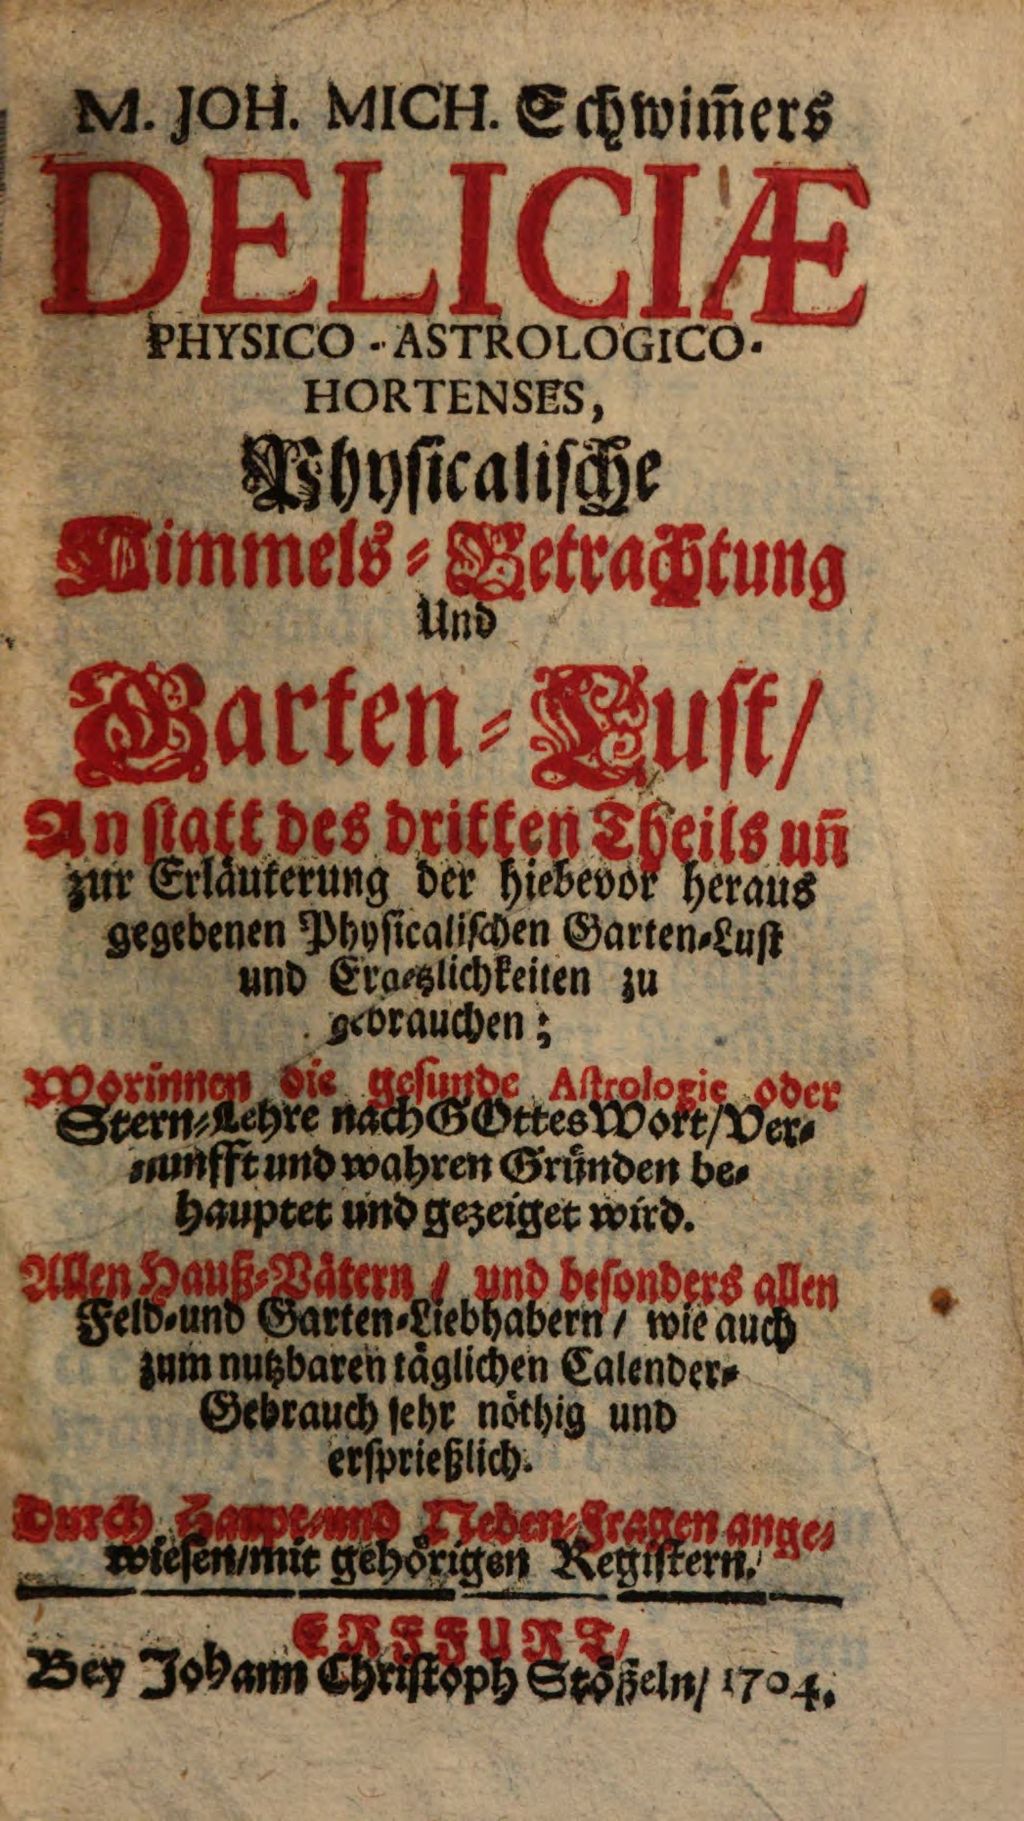 M. JOH. MICH. Schwim̄ers
DELICIÆ
PHYSICO-ASTROLOGICO-
HORTENSES,
Physicalische
Himmels-Betrachtung
Und
Garten-Lust/
An statt des dritten Theils un̄
zur Erläuterung der hiebevor heraus
gegebenen Physicalischen Garten-Lust
und Ergetzlichkeiten zu
gebrauchen;
Worinnen die gesunde Astrologie oder
Stern-Lehre nach GOttes Wort/Ver-
nunfft und wahren Gründen be-
hauptet und gezeiget wird.
Allen Hauß-Vätern / und besonders allen
Feld-und Garten-Liebhabern / wie auch
zum nutzbaren täglichen Calender-
Gebrauch sehr nöthig und
ersprießlich.
Durch Haupt-und Neben-Fragen ange-
wiesen/mit gehörigen Registern.
ERFFURT/
Bey Johann Christoph Stößeln/ 1704.